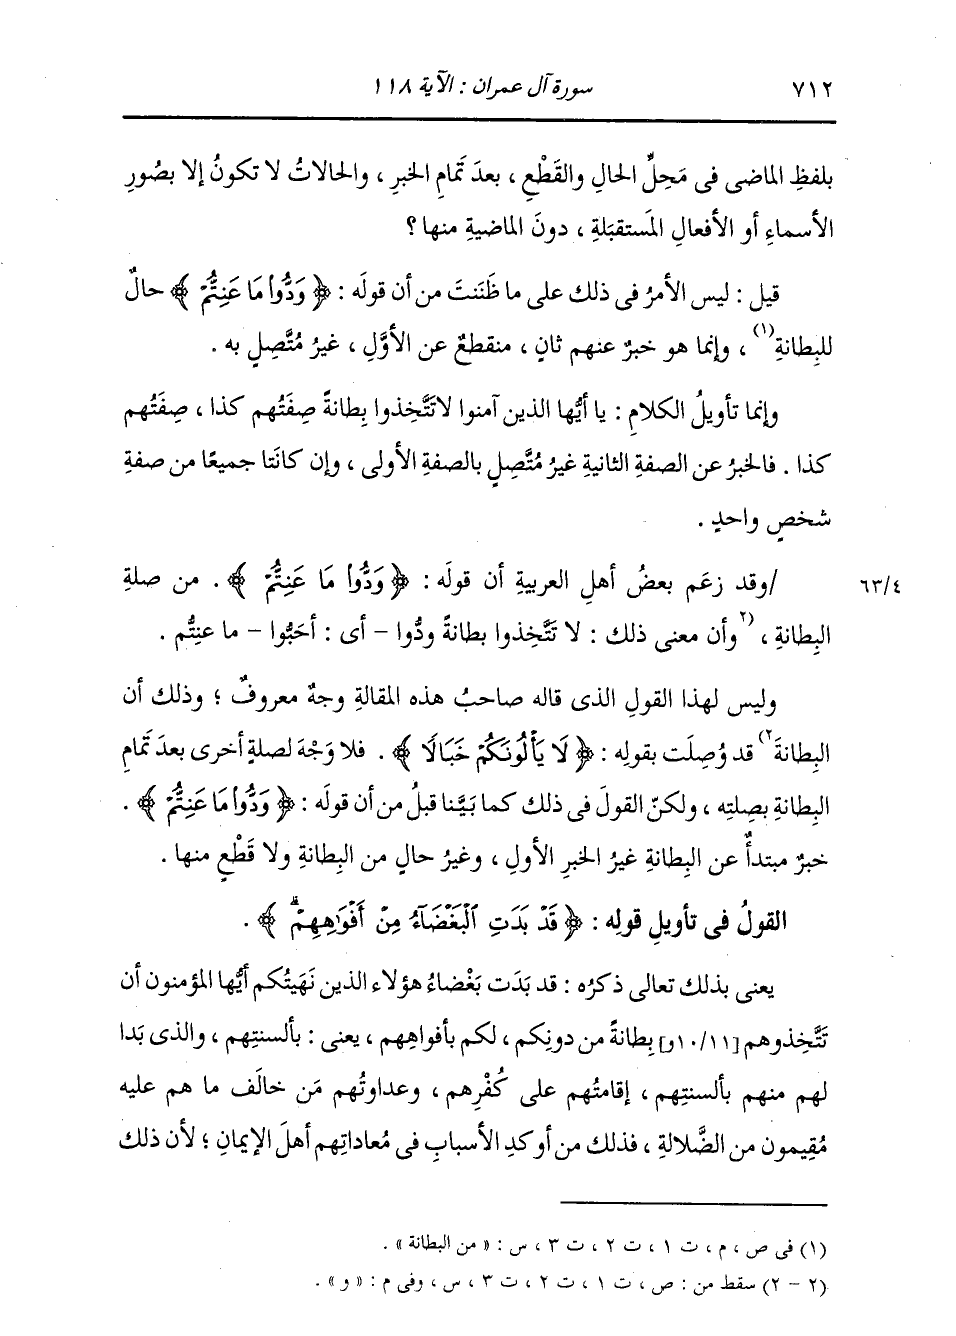 ٧١٢ سورة آل عمران : الآية ١١٨
بلفظِ الماضى فى مَحِلِّ الحالِ والقَطْعِ ، بعدَ تَمامِ الخبرِ ، والحالاتُ لا تكونُ إلا بصُورِ
الأسماءِ أو الأفعالِ المُستقبَلةِ ، دونَ الماضيةِ منها ؟
قيل : ليس الأمرُ فى ذلك على ما ظَنَنتَ من أن قولَه : ﴿ وَدُّوا۟ مَا عَنِتُّمْ ﴾ حالٌ
للبِطانةِ(١) ، وإنما هو خبرٌ عنهم ثانٍ ، منقطعٌ عن الأوَّلِ ، غيرُ مُتَّصِلٍ به .
وإنما تأويلُ الكلامِ : يا أيُّها الذين آمنوا لاتَتَّخِذوا بِطانةً صِفَتُهم كذا ، صِفَتُهم
كذا . فالخبرُ عن الصفةِ الثانيةِ غيرُ مُتَّصِلٍ بالصفةِ الأولى ، وإن كانَتا جميعًا من صفةِ
شخصٍ واحدٍ .
٦٣/٤ /وقد زعَم بعضُ أهلِ العربيةِ أن قولَه : ﴿ وَدُّوا۟ مَا عَنِتُّمْ ﴾ . من صلةِ
البِطانةِ ، (٢وأن معنى ذلك : لا تَتَّخِذوا بطانةً ودُّوا - أى : أحَبُّوا - ما عنِتُّم .
وليس لهذا القولِ الذى قاله صاحبُ هذه المقالةِ وجهٌ معروفٌ ؛ وذلك أن
البطانةَ٢) قد وُصِلَت بقولِه : ﴿ لَا يَأْلُونَكُمْ خَبَالًا ﴾ . فلا وَجْهَ لصلةٍ أخرى بعدَ تَمامِ
البِطانةِ بصِلتِه ، ولكنّ القولَ فى ذلك كما بَيَّنا قبلُ من أن قولَه : ﴿ وَدُّوا۟ مَا عَنِتُّمْ ﴾ .
خبرٌ مبتدأٌ عن البِطانةِ غيرُ الخبرِ الأولِ ، وغيرُ حالٍ من البِطانةِ ولا قَطْعٍ منها .
القولُ فى تأويلِ قولِه : ﴿ قَدْ بَدَتِ ٱلْبَغْضَآءُ مِنْ أَفْوَٰهِهِمْ ﴾ .
يعنى بذلك تعالى ذكرُه : قد بَدَت بَغْضاءُ هؤلاء الذين نَهَيْتُكم أيُّها المؤمنون أن
تَتَّخِذوهم [١٠/١١و] بِطانةً من دونِكم ، لكم بأفواهِهم ، يعنى : بألسنتِهم ، والذى بَدا
لهم منهم بألسنتِهم ، إقامتُهم على كُفْرِهم ، وعداوتُهم مَن خالَف ما هم عليه
مُقِيمون من الضَّلالةِ ، فذلك من أوكدِ الأسبابِ فى مُعاداتِهم أهلَ الإيمانِ ؛ لأن ذلك
(١) فى ص ، م ، ت ١ ، ت ٢ ، ت ٣ ، س : « من البطانة » .
(٢ - ٢) سقط من : ص ، ت ١ ، ت ٢ ، ت ٣ ، س ، وفى م : « و » .